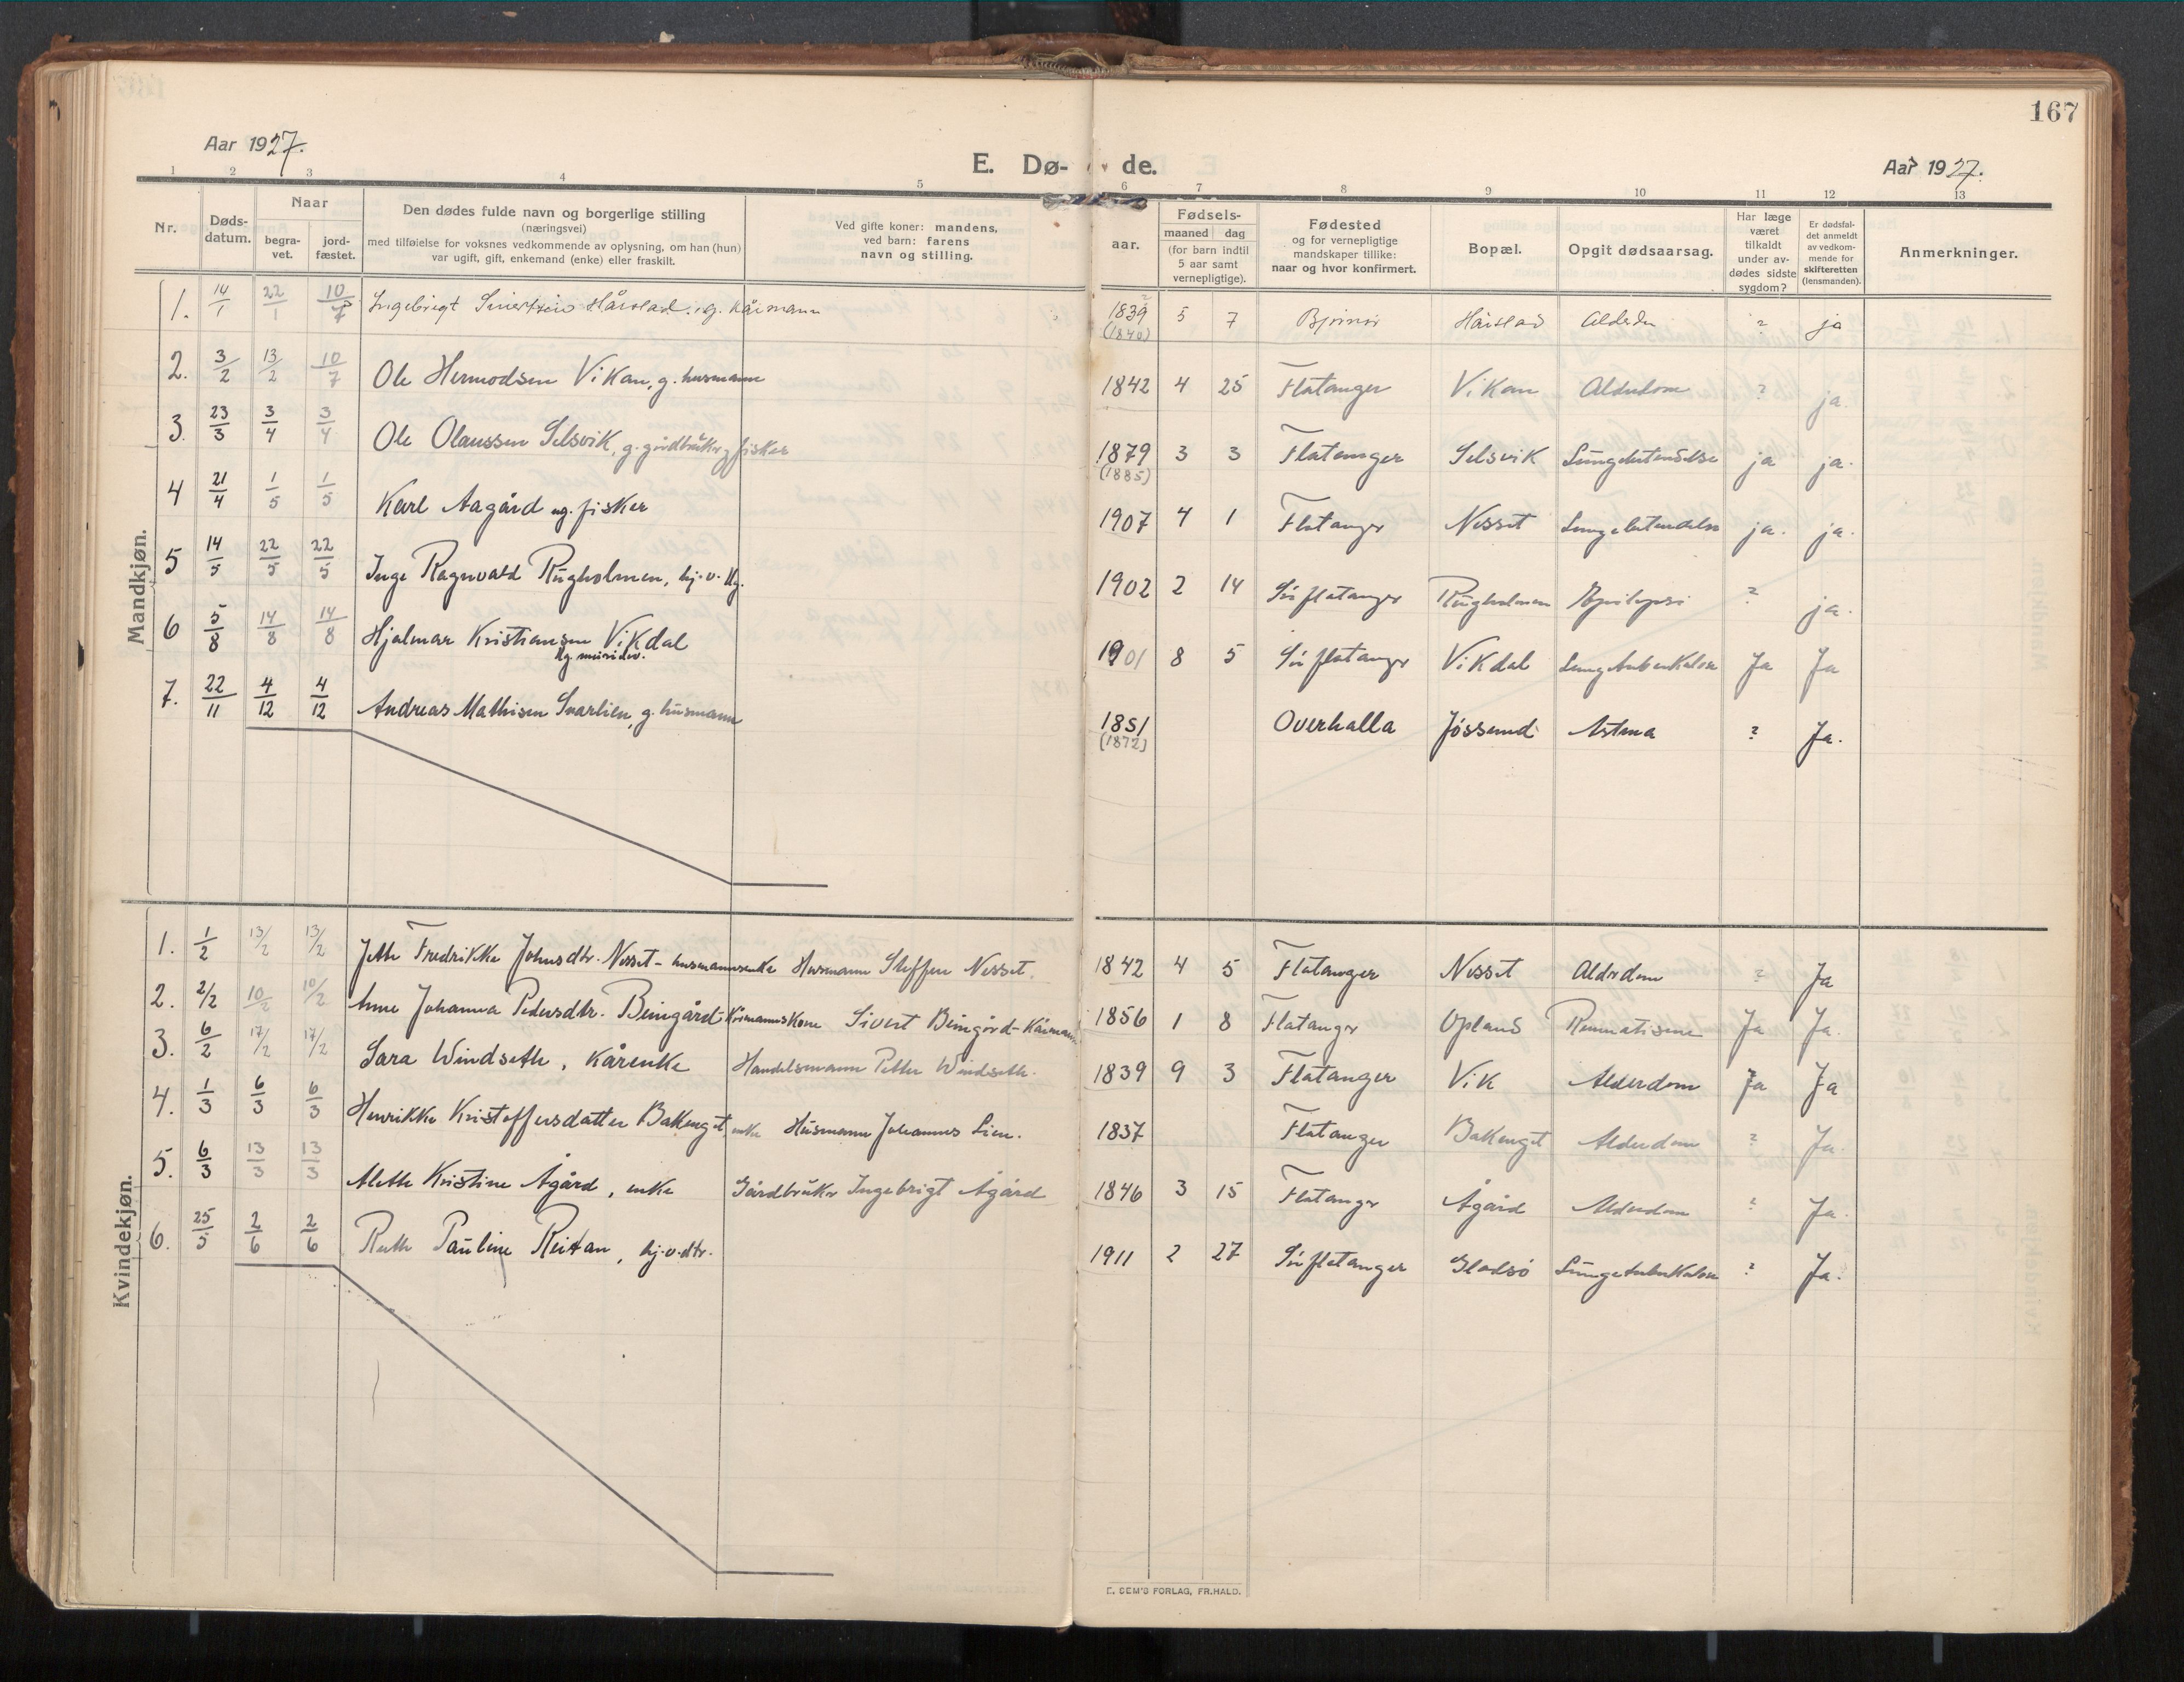 167
Aar 1927.
E. Dø- de.
Aar 1927.
1 2 3 4 5 6 7 8 9 10 11 12 13
Nr.
Døds-
datum.
Naar
begra-
vet.
jord-
fæstet.
Den dødes fulde navn og borgerlige stilling
(næringsvei)
med tilføielse for voksnes vedkommende av oplysning, om han (hun)
var ugift, gift, enkemand (enke) eller fraskilt.
Ved gifte koner: mandens,
ved barn: farens
navn og stilling.
aar.
Fødsels-
maaned dag
(for barn indtil
5 aar samt
vernepligtige).
Fødested
og for vernepligtige
mandskaper tillike:
naar og hvor konfirmert.
Bopæl.
Opgit dødsaarsag.
Har læge
været
tilkaldt
under av-
dødes sidste
sygdom?
Er dødsfal-
det anmeldt
av vedkom-
mende for
skifteretten
(lensmanden).
Anmerkninger.
Mandkjøn.
1. 14/1 22/1 10/7 Ingebrigt Sivertsen Hårstad. g. kårmann 1839 (1840) 5 7 Hårstad ? ja
2. 3/2 13/2 10/7 Ole Hermodsen Vikan, g. husmann 1842 4 25 Flatanger Vikan Alderdom ? ja.
3. 23/3 3/4 3/4 Ole Olaussen Selsvik, g. gårdbruker og fisker 1879 (1885) 3 3 Flatanger Selsvik Lungebetendelse ja ja.
4 21/4 1/5 1/5 Karl Aagård ug. fisker 1907 4 1 Flatanger Nesset Lungebetendelse ja. ja.
5 14/5 22/5 22/5 Inge Ragnvald Rugholmen, hj.v. Ug. 1902 2 14 Sør flatanger Rugholmen Epilepsi ? ja.
6 5/8 14/8 14/8 Hjalmar Kristiansen Vikdal 1901 8 5 Sør flatanger Vikdal Lungetuberkulose Ja Ja
7. 22/11 4/12 4/12 Andreas Mathisen Svarlien, g. husmann 1851 (1872) Overhalla Jøssund Astma ? Ja.
Kvindekjøn.
1. 1/2 13/2 13/2 Jette Fredrikke Johnsdtr. Nesset - husmannsenke Husmann Steffen Nesset. 1842 4 5 Flatanger Nesset Alderdom ? Ja
2. 2/2 10/2 10/2 Anne Johanna Pedersdtr. Beingård - Kårmannskone Sivert Beingård - Kårmann 1856 1 8 Flatanger Opland Reumatisme Ja Ja.
3. 6/2 17/2 17/2 Sara Windseth, kårenke Handelsmann Petter Windseth. 1839 9 3 Flatanger Vik Alderdom Ja Ja
4. 1/3 6/3 6/3 Henrikke Kristoffersdatter Bakenget, enke Husmann Johannes Lien. 1837 Flatanger Bakenget Alderdom ? Ja.
5. 6/3 13/3 13/3 Alette Kristine Ågård, enke Gårdbruker Ingebrigt Ågård 1846 3 15 Flatanger Ågård Alderdom ? Ja.
6. 25/5 2/6 2/6 Ruth Pauline Reitan, hj.v.dtr. 1911 2 27 Sør flatanger Gladsø Lungetuberkulose ? Ja.
E. SEM'S FORLAG, FR.HALD.